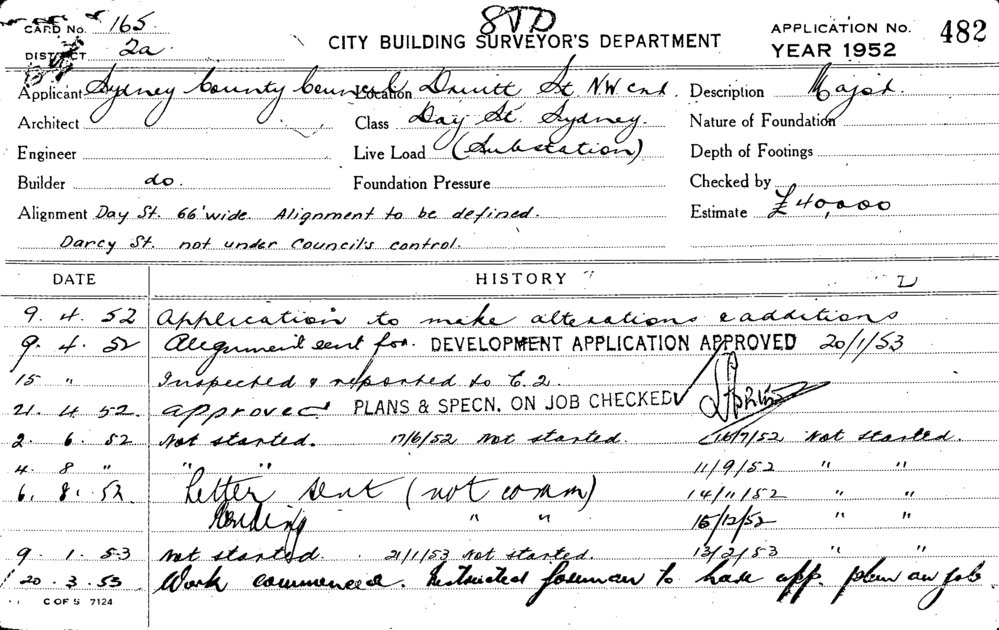 CARD No. 165 STD APPLICATION No. 482
DISTRICT 2a CITY BUILDING SURVEYOR'S DEPARTMENT YEAR 1952
Applicant Sydney County Council Location Druitt St NW cnr. Description
Architect Class Day St. Sydney. Nature of Foundation
Engineer Live Load (Substation) Depth of Footings
Builder do. Foundation Pressure Checked by
Alignment Day St. 66' wide Alignment to be defined. Estimate £40,000
Darcy St. not under Council's control.
DATE HISTORY
9. 4. 52 Application to make alterations & additions
9. 4. 52 Alignment sent for. DEVELOPMENT APPLICATION APPROVED 20/1/53
15 " Inspected & reported to C.2.
21. 4. 52. approved PLANS & SPECN. ON JOB CHECKED
2. 6. 52 Not started. 17/6/52 Not started. 16/7/52 Not started.
4. 8 " " " 11/9/52 " "
6. 8. 52 Letter sent (not comm) 14/11/52 " "
Pending " " 15/12/52 " "
9. 1. 53 Not started. 21/1/53 Not started. 13/2/53 " "
20. 3. 53 Work commenced. Instructed foreman to have app. plan on job
C OF S 7124